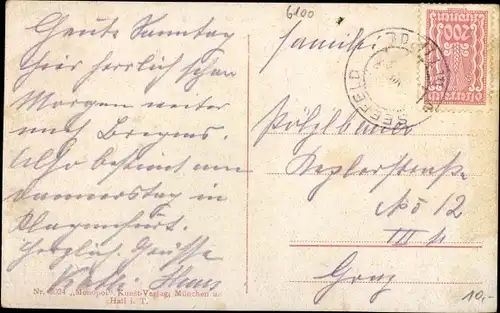 6100
Heute Sonntag
hier herrlich schön
Morgen weiter
nach Bregenz.
Also bestimmt am
Donnerstag in
Klagenfurt.
Herzlich. Grüsse
Hans
Familie
Keplerstrasse
No 12
III St
Graz
SEEFELD
200
10.-
Nr. 6024 „Monopol“ Kunst-Verlag, München u.
Hall i. T.